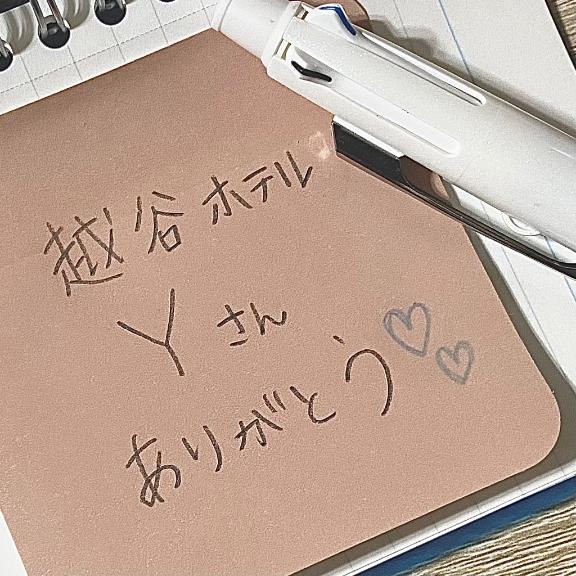 越谷 ホテル
Y さん
ありがとう♡♡